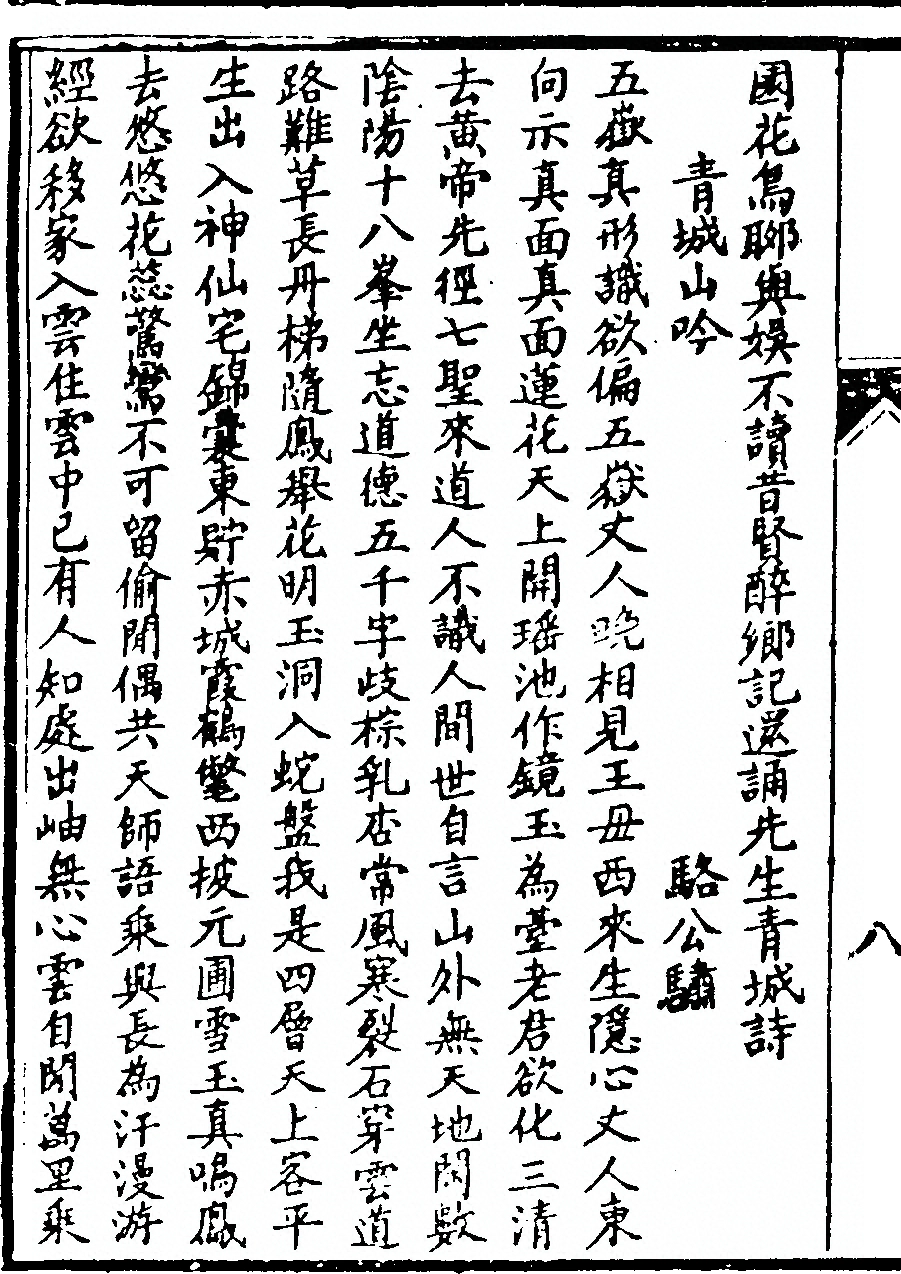 園花鳥聊與娛不讀昔賢醉鄉記還誦先生青城詩
青城山吟 駱公驌
五嶽真形識欲偏五嶽丈人晚相見王毋西來生隱心丈人東
向示真面真面蓮花天上開瑶池作鏡玉為臺老君欲化三清
去黄帝先徑七聖來道人不識人間世自言山外無天地閑數
陰陽十八峯坐忘道德五千字歧棕乳杏常風寒裂石穿雲道
路難草長丹梯隨鳳舉花明玉洞入蛇盤我是四層天上客平
生出入神仙宅錦裳東貯赤城霞鶴氅西披元圃雪玉真鳴鳳
去悠悠花蕊驚鸞不可留偷閒偶共天師語乘興長為汗漫游
經欲移家入雲住雲中已有人知處出岫無心雲自閒萬里乘
八